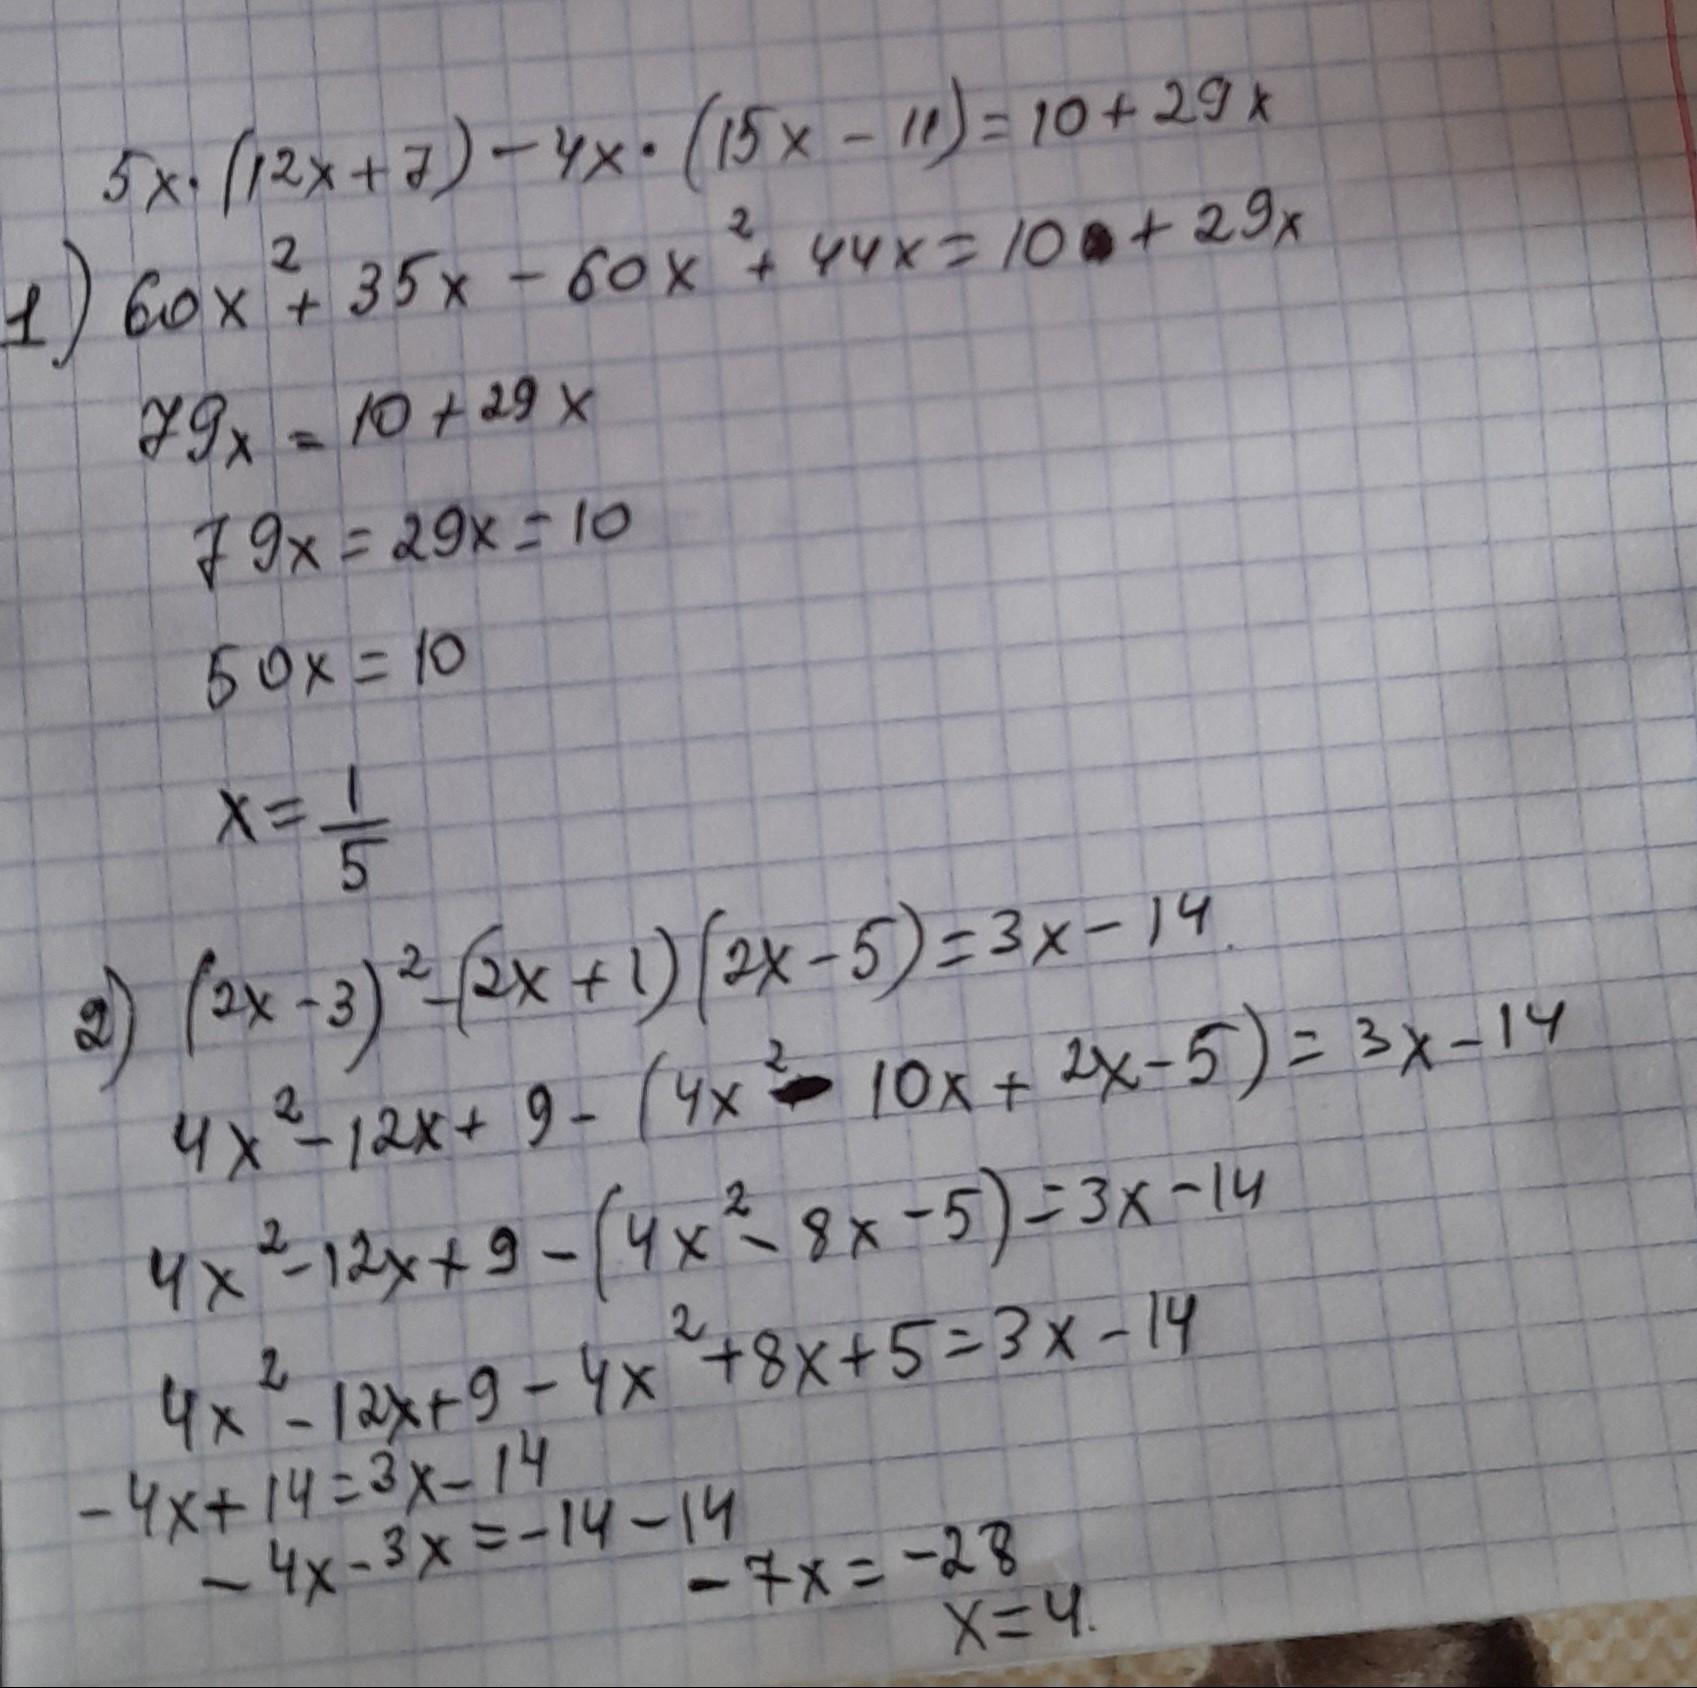 5x·(12x+7)-4x·(15x-11)=10+29x
1) 60x²+35x-60x²+44x=10+29x
79x=10+29x
79x=29x=10
50x=10
x=1/5
2) (2x-3)²-(2x+1)(2x-5)=3x-14.
4x²-12x+9-(4x²-10x+2x-5)=3x-14
4x²-12x+9-(4x²-8x-5)=3x-14
4x²-12x+9-4x²+8x+5=3x-14
-4x+14=3x-14
-4x-3x=-14-14
-7x=-28
x=4.